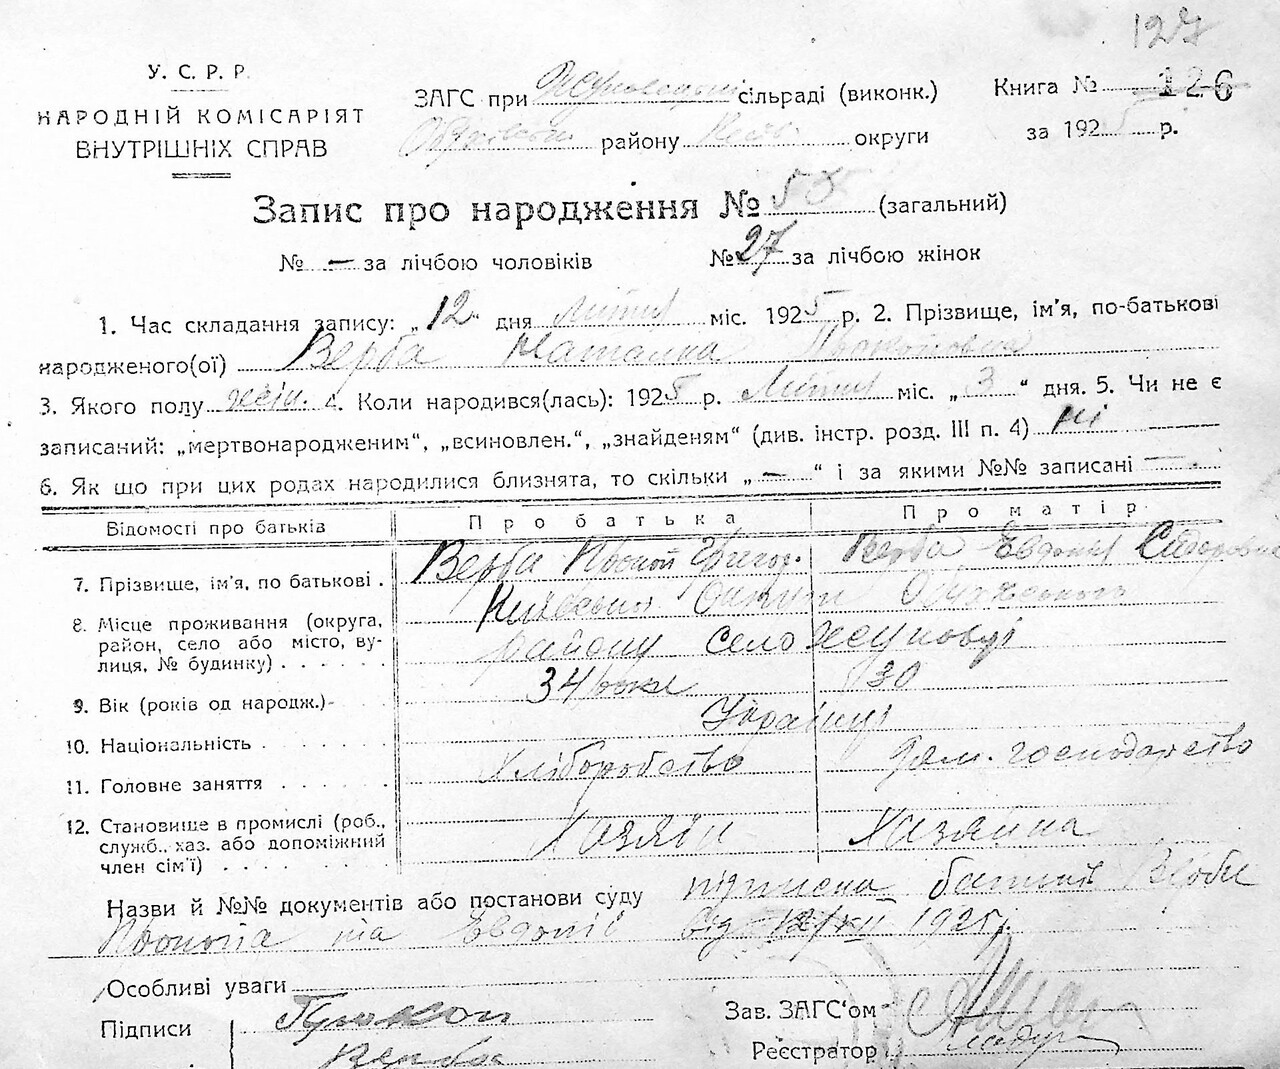 127
У. С. Р. Р.
НАРОДНІЙ КОМІСАРІЯТ
ВНУТРІШНІХ СПРАВ
ЗАГС при сільраді (виконк.)
району округи
Книга № 126
за 1925 р.
Запис про народження № 50 (загальний)
№ — за лічбою чоловіків № 27 за лічбою жінок
1. Час складання запису: „12“ дня Липня міс. 1925 р. 2. Прізвище, ім'я, по-батькові
народженого(ої) Верба Наталка Прокоповна
3. Якого полу жін. 4. Коли народився(лась): 1925 р. Липня міс. „3“ дня. 5. Чи не є
записаний: „мертвонародженим“, „всиновлен.“, „знайденям“ (див. інстр. розд. III п. 4) ні
6. Як що при цих родах народилися близнята, то скільки „—“ і за якими №№ записані —.
Відомості про батьків Про батька Про матір
7. Прізвище, ім'я, по батькові . Верба Григор. Верба Евдокія Сидоровна
8. Місце проживання (округа, район, село або місто, вулиця, № будинку) . . . . . Київської Округи Обухівського
району село Жуковці
9. Вік (років од народж.)- 34 роки 30
10. Національність . . . . . Українці
11. Головне заняття . . . . . Хліборобство дом. господарство
12. Становище в промислі (роб., служб., хаз. або допоміжний член сім'ї) . . . . Хазяїн Хазяйка
Назви й №№ документів або постанови суду підписка батьків Верби
Прокопа та Евдокії від 12/VII 1925 р.
Особливі уваги
Підписи Прокоп
Верба
Зав. ЗАГС'ом
Реєстратор